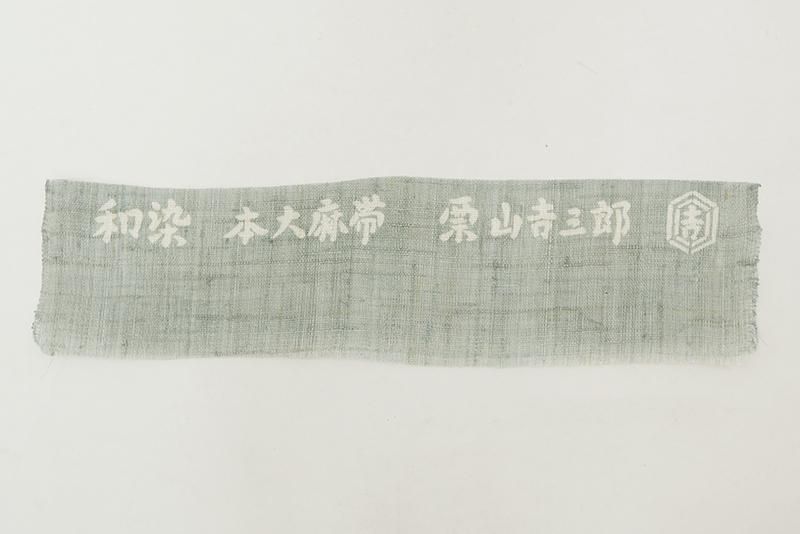 和染 本大麻帯 栗山𠮷三郎 𠮷